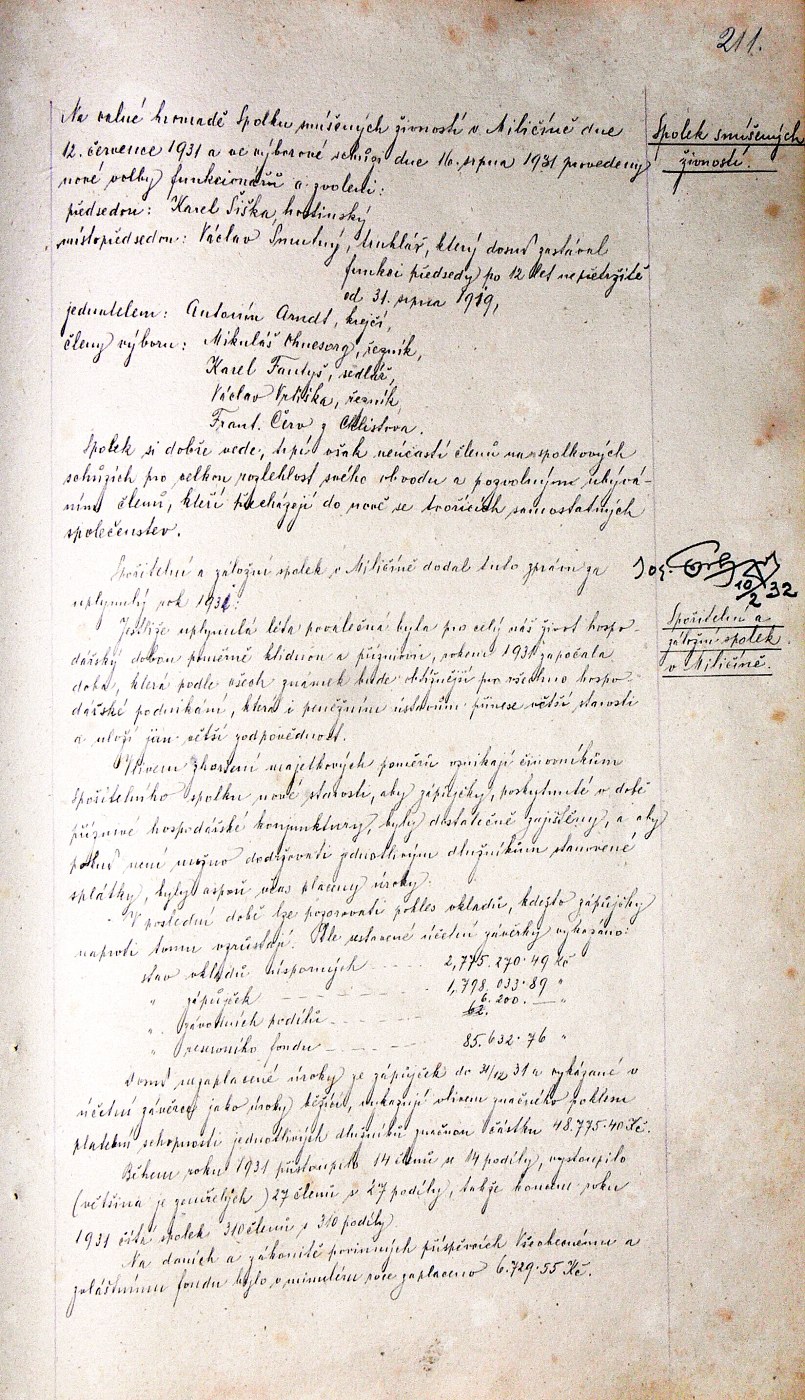 211.
Na valné hromadě Spolku smíšených živností v Miličíně dne
12. července 1931 a ve výborové schůzi dne 16. srpna 1931 provedeny
nové volby funkcionářů a zvoleni:
předsedou: Karel Šiška, hostinský,
místopředsedou: Václav Smutný, truhlář, který dosud zastával
funkci předsedy po 12 let nepřetržitě
od 31. srpna 1919,
jednatelem: Antonín Arndt, krejčí,
členy výboru: Mikuláš Ohnesorg, řezník,
Karel Fantyš, sedlář,
Václav Vrtiška, řezník,
Frant. Červ z
Spolek si dobře vede, trpí však neúčastí členů na spolkových
schůzích pro velkou rozlehlost svého obvodu a pozvolným ubývá-
ním členů, kteří přecházejí do nově se tvořících samostatných
společenstev.
Spolek smíšených
živností.
Spořitelní a záložní spolek v Miličíně dodal tuto zprávu za
uplynulý rok 1931:
Jestliže uplynulá léta poválečná byla pro celý náš život hospo-
dářský dobou poměrně klidnou a příznivou, rokem 1931 započala
doba, která podle všech známek bude obtížnější pro všechno hospo-
dářské podnikání, která i peněžním ústavům přinese větší starosti
a uloží jim větší zodpovědnost.
Vlivem zhoršení majetkových poměrů vznikají činovníkům
Spořitelního spolku nové starosti, aby zápůjčky, poskytnuté v době
příznivé hospodářské konjunktury, byly dostatečně zajištěny, a aby
pokud není možno dodržovati jednotlivým dlužníkům stanovené
splátky, byly aspoň včas placeny úroky.
V poslední době lze pozorovati pokles vkladů, kdežto zápůjčky
naproti tomu vzrůstají. Dle sestavené účetní závěrky vykázáno:
stav vkladů úsporných 2,775.270·49 Kč
" zápůjček 1,798.033·89 "
" závodních podílů 6.200.— "
" reservního fondu 85.632·76 "
Dosud nezaplacené úroky ze zápůjček do 31/12 31 a vykázané v
účetní závěrce jako úroky běžící, vykazují vlivem značného poklesu
platební schopnosti jednotlivých dlužníků značnou částku 48.775·40 Kč.
Během roku 1931 přistoupilo 14 členů se 14 podíly, vystoupilo
(většina je zemřelých) 27 členů s 27 podíly, takže koncem roku
1931 čítá spolek 310 členů s 310 podíly.
Na daních a zákonitě povinných příspěvcích Všeobecnému a
zvláštnímu fondu bylo v minulém roce zaplaceno 6.729·55 Kč.
Jos.
10/2 32
Spořitelní a
záložní spolek
v Miličíně.